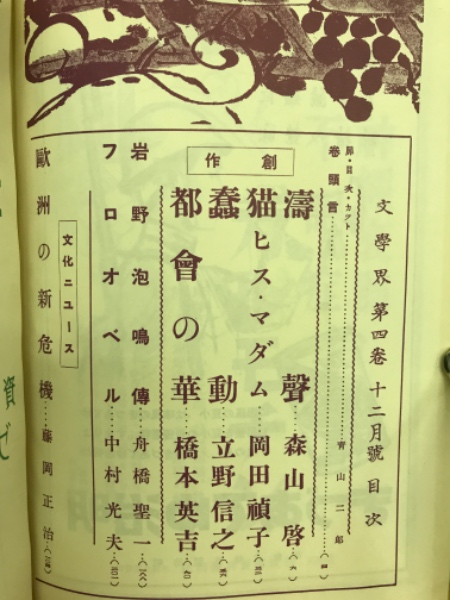 文學界第四卷十二月號目次
扉・目次・カット……靑山二郎
卷頭言……
創作
濤聲……森山啓
猫ヒス・マダム……岡田禎子
蠢動……立野信之
都會の華……橋本英吉
岩野泡鳴傳……舟橋聖一
フロオベル……中村光夫
文化ニュース
歐洲の新危機……藤岡正治
資